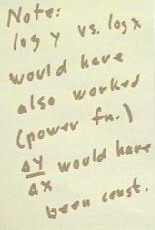 Note:
log y vs. log x
would have
also worked
(power fn.)
ΔY/ΔX would have
been const.